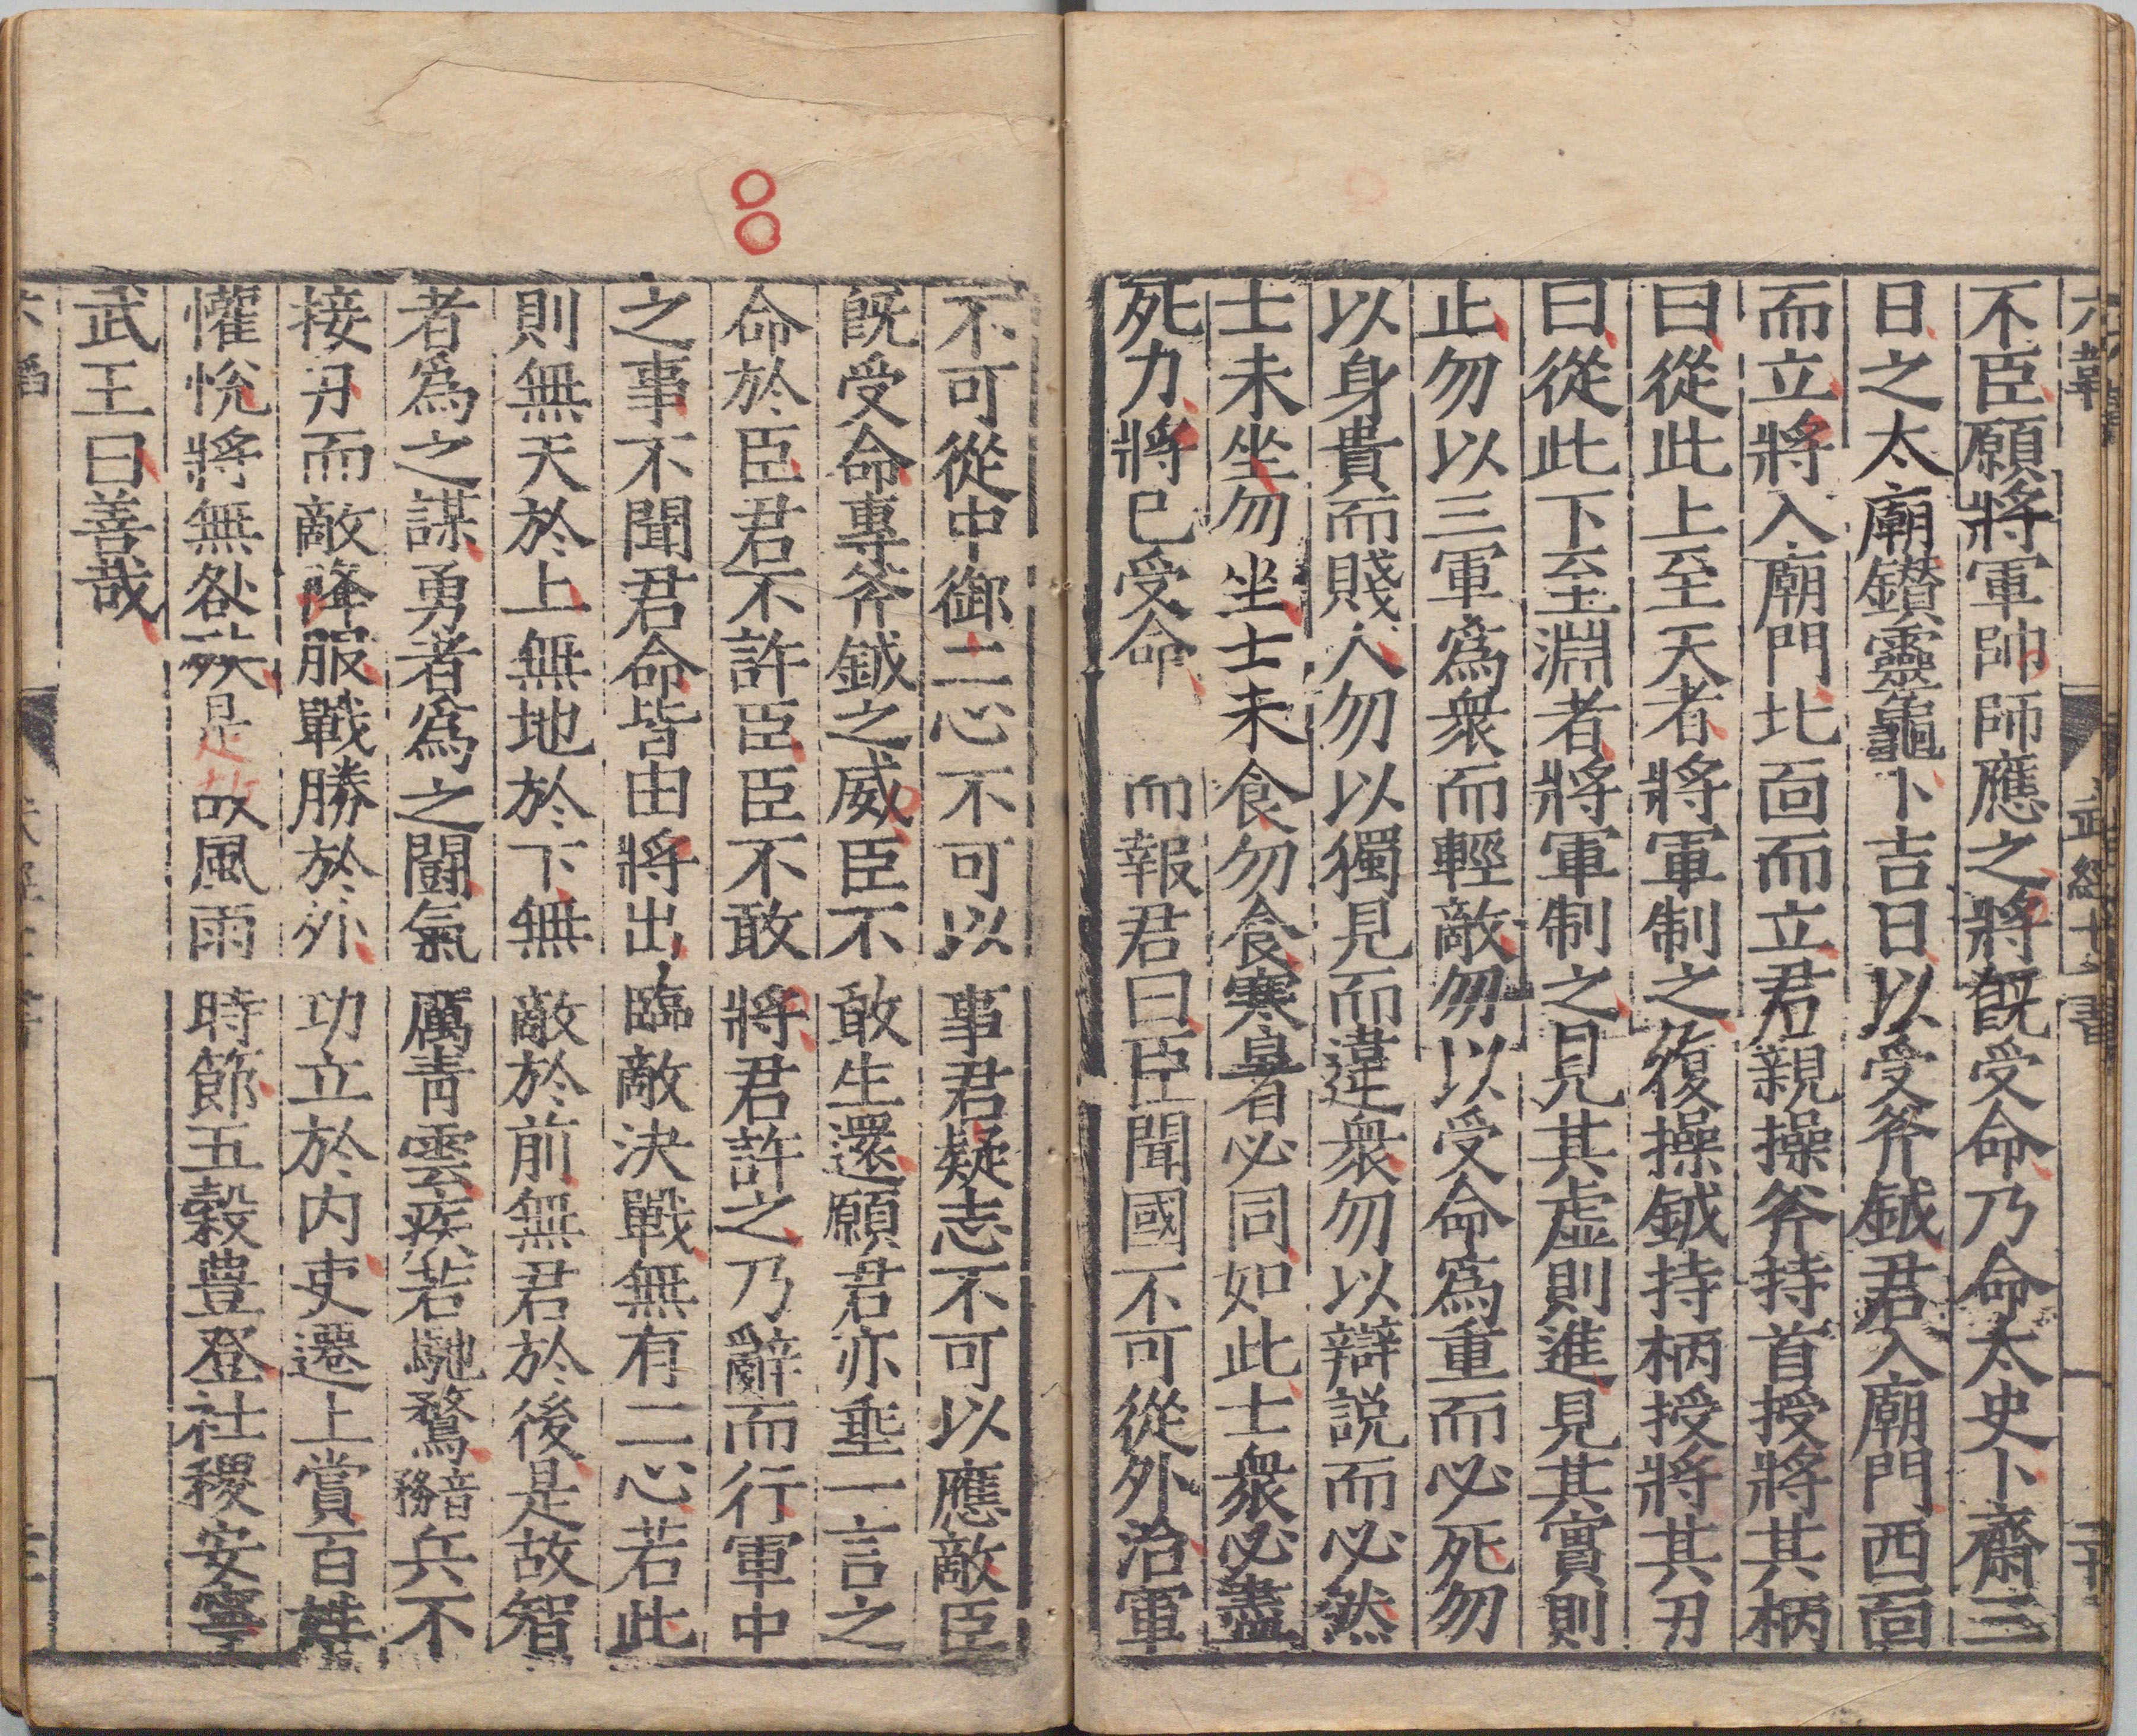 不臣願將軍帥師應之將既受命乃命太史卜齋三
日之太廟鑚靈龜卜吉日以受斧鉞君入廟門西面
而立將入廟門北面而立君親操斧持首授將其柄
曰從此上至天者將軍制之復操鉞持柄授將其刃
曰從此下至淵者將軍制之見其虛則進見其實則
止勿以三軍爲衆而輕敵勿以受命爲重而必死勿
以身貴而賤人勿以獨見而違衆勿以辯説而必然
士未坐勿坐士未食勿食寒暑必同如此士衆必盡
死力將已受命而報君曰臣聞國不可從外治軍
不可從中御二心不可以事君疑志不可以應敵臣
既受命專斧鉞之威臣不敢生還願君亦垂一言之
命於臣君不許臣臣不敢將君許之乃辭而行軍中
之事不聞君命皆由將出臨敵決戰無有二心若此
則無天於上無地於下無敵於前無君於後是故智
者爲之謀勇者爲之鬪氣厲青雲疾若馳騖音務兵不
接刃而敵降服戰勝於外功立於内吏遷上賞百姓
懽悅將無咎殃是故風雨時節五穀豊登社稷安寧
武王曰善哉